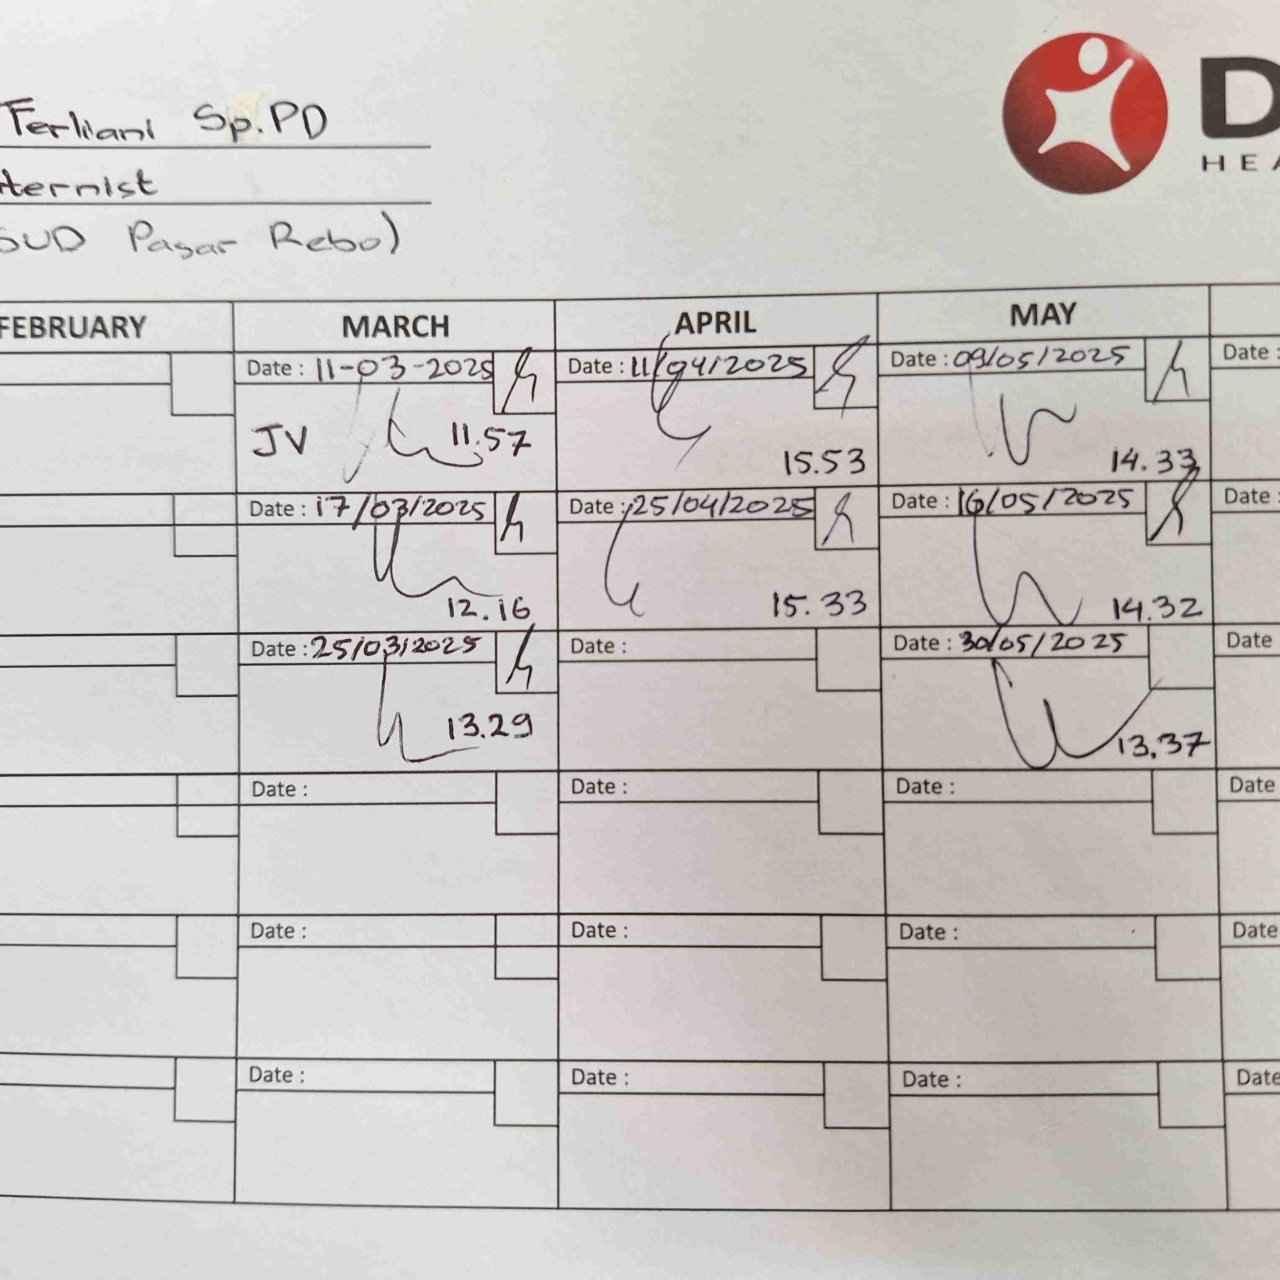 Ferliani Sp.PD
ternist
SUD Pasar Rebo)
D
HEA
FEBRUARY MARCH APRIL MAY
Date : 11-03-2025 Date : 11/04/2025 Date : 09/05/2025 Date :
JV 11.57 15.53 14.33
Date : 17/03/2025 Date : 25/04/2025 Date : 16/05/2025 Date :
12.16 15.33 14.32
Date : 25/03/2025 Date : Date : 30/05/2025 Date
13.29 13,37
Date : Date : Date : Date
Date : Date : Date : Date
Date : Date : Date : Date